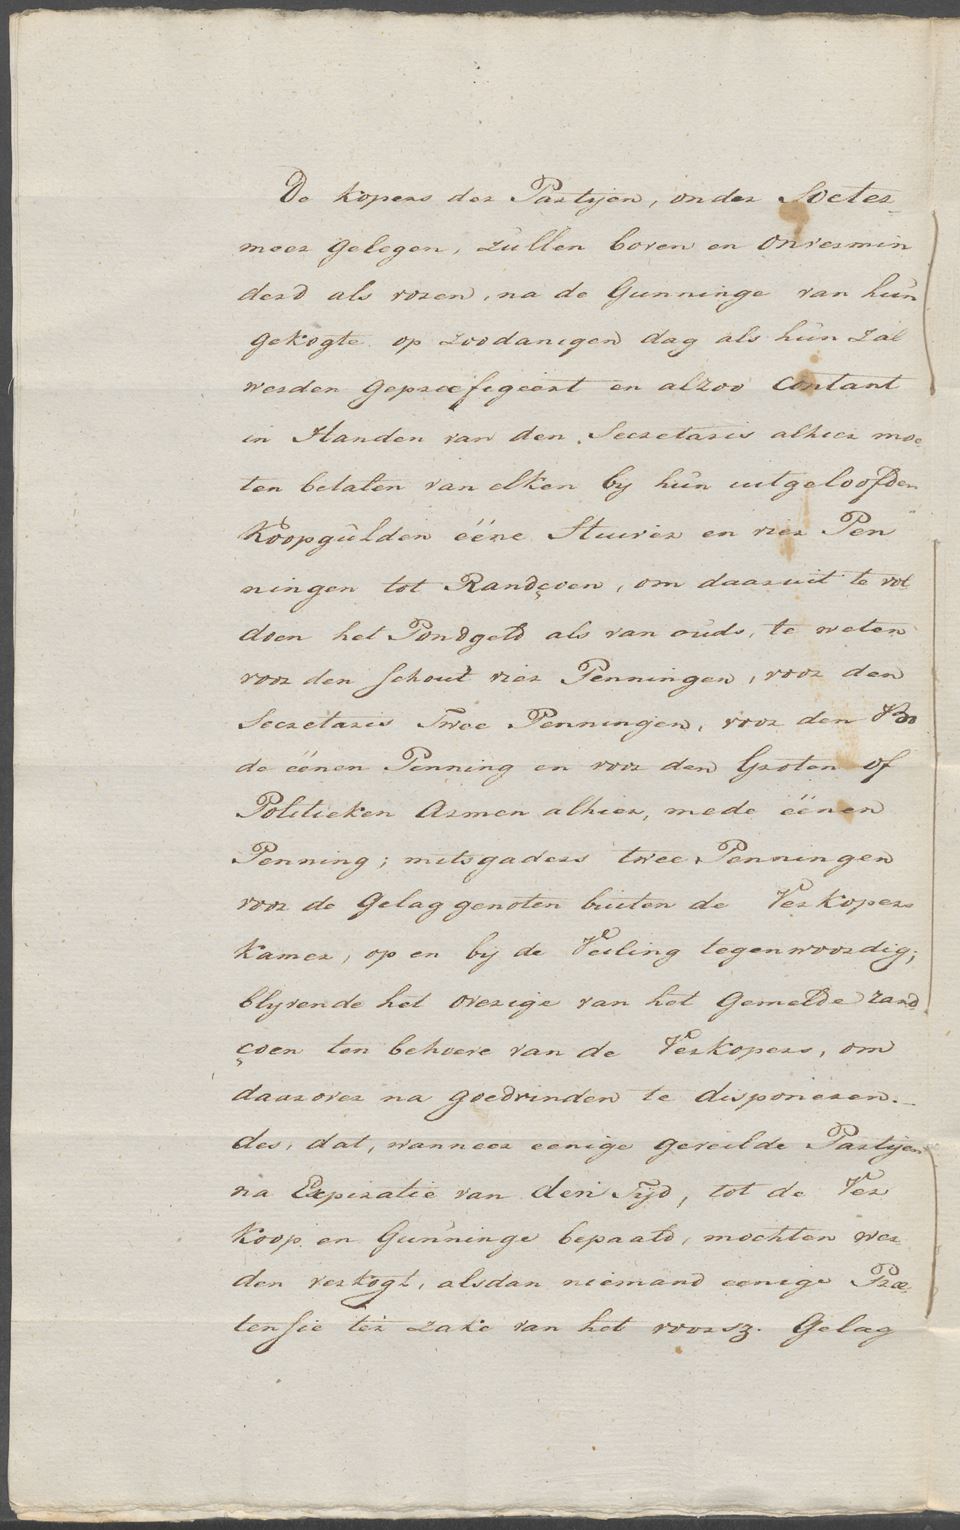 De kopers der Partijen, onder Soeter
meer gelegen, zullen boven en onvermin
derd als voren, na de Gunninge van hun
gekogte op zoodanigen dag als hun zal
werden gepraefigeert en alzoo contant
in Handen van den Secretaris alhier moe
ten betalen van elken by hun uitgeloofden
Koopgulden ééne Stuiver en vier Pen
ningen tot Randçoen, om daaruit te vol
doen het Pondgeld als van ouds, te weten
voor den Schout vier Penningen, voor den
Secretaris Twee Penningen, voor den Bo
de éénen Penning en voor den Groten of
Politieken Armen alhier, mede éénen
Penning; mitsgaders twee Penningen
voor de Gelaggenoten buiten de Verkopers
kamer, op en bij de Veiling tegenwoordig;
blyvende het overige van het Gemelde rand
çoen ten behoeve van de Verkopers, om
daarover na goedvinden te disponeren.
des, dat, wanneer eenige geveilde Partijen
na Expiratie van den Tijd, tot de Ver
koop en Gunninge bepaald, mochten wer
den verkogt, alsdan niemand eenige Prae
tensie ter zake van het voorsz. Gelag